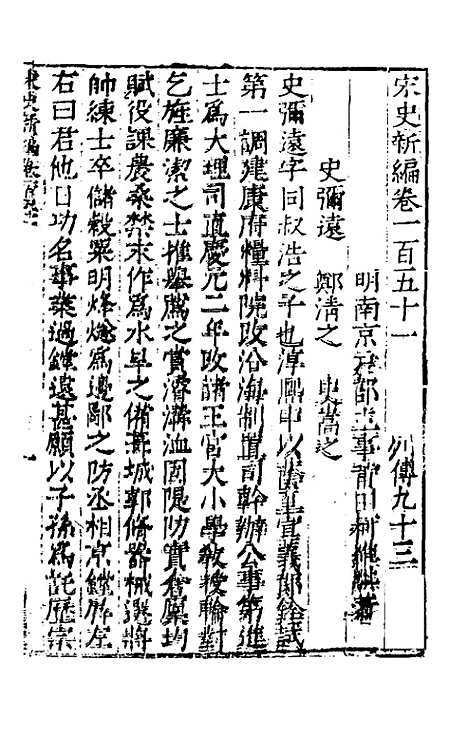 宋史新編卷一百五十一　列傳九十三
明南京戶部主事莆田柯維騏著
史彌遠　鄭清之　史嵩之
史彌遠字同叔浩之子也淳熙中以蔭補宣義郎銓試
第一調建康府糧料院改沿海制置司幹辦公事第進
士爲大理司直慶元二年改諸王宮大小學教授輪對
乞旌廉潔之士推舉薦之賞濬溝洫固隄防實倉廩均
賦役課農桑禁末作爲水旱之備葺城郭修器械選將
帥練士卒儲穀粟明烽燧爲邊鄙之防丞相京鏜屏左
右曰君他日功名事業過鏜遠甚願以子孫爲託歷宗
宋史新編卷一百五十一　一